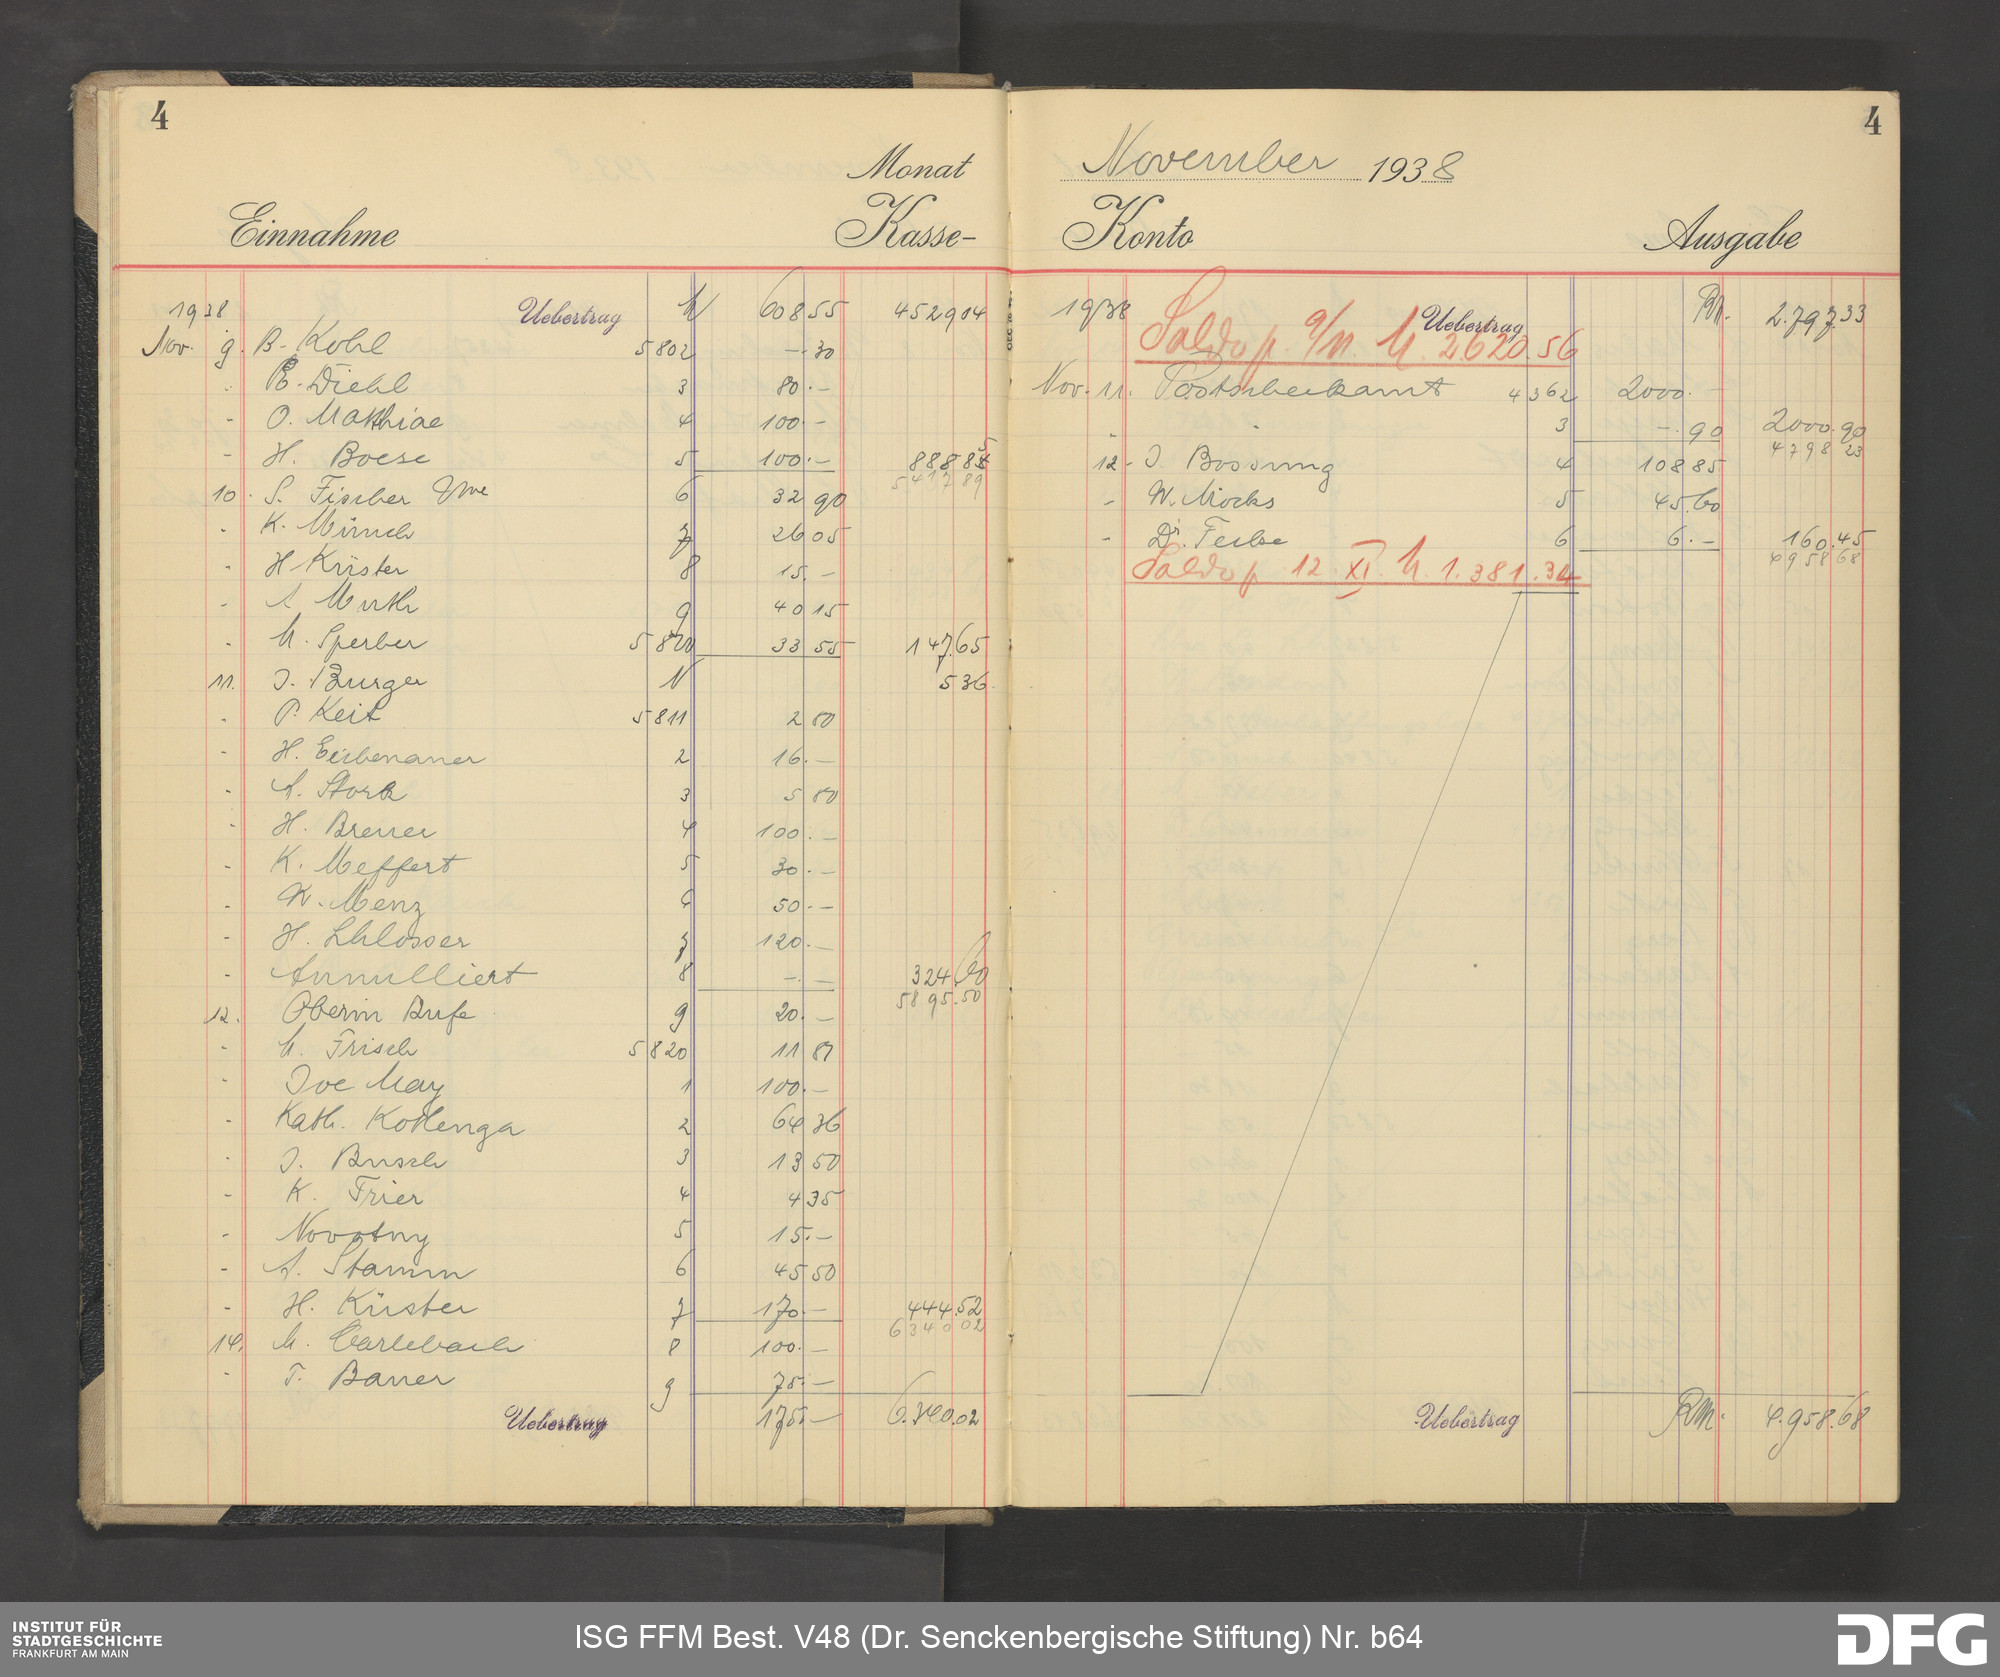 4
Monat
Einnahme Kasse-
1938 Uebertrag M 608 55 4529 04
Nov. 9. B. Kohl 5802 —.30
- E. Diehl 3 80.—
- O. Matthiae 4 100.—
- H. Boese 5 100.— 888 85
5417 89
10. S. Fischer Wwe 6 32 90
- K. Münch 7 26 05
- H Küster 8 15.—
- A Muth 9 40 15
- M. Sperber 5810 33 55 147.65
11. J. Burger N 5 36
- P. Keit 5811 2 80
- H. Eichenauer 2 16.—
- A. Stork 3 5 80
- H. Breuer 4 100.—
- K. Meffert 5 30.—
- K. Menz 6 50.—
- H. Schlosser 7 120.—
- Annulliert 8 —.— 324.60
5895.50
12. Oberin Rufe 9 20.—
- M. Frisch 5820 11 81
- Ive May 1 100.—
- Kath. Kothenga 2 64 36
- J. Busch 3 13 50
- K. Frier 4 4 35
- Novotny 5 15.—
- A. Stamm 6 45 50
- H. Küster 7 170.— 444.52
6340 02
14. M. Carlebach 8 100.—
- F. Bauer 9 75.—
Uebertrag 175.— 6.340.02
4
November 1938
Konto Ausgabe
1938 Uebertrag RM. 2.797.33
Saldo p. 9/11. M. 2620.56
Nov. 11. Postscheckamt 4362 2000.—
- - 3 —.90 2000.90
4798 23
12. J. Bossung 4 108 85
- W. Mocks 5 45.60
- Dr. 6 6.— 160.45
4958 68
Saldo p. 12. XI. M. 1.381.34
Uebertrag RM. 4.958.68
INSTITUT FÜR
STADTGESCHICHTE
FRANKFURT AM MAIN
ISG FFM Best. V48 (Dr. Senckenbergische Stiftung) Nr. b64
DFG